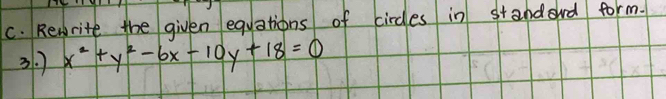 C. Rewrite the given equations of circles in standard form.
3.) x² + y² - 6x - 10y + 18 = 0